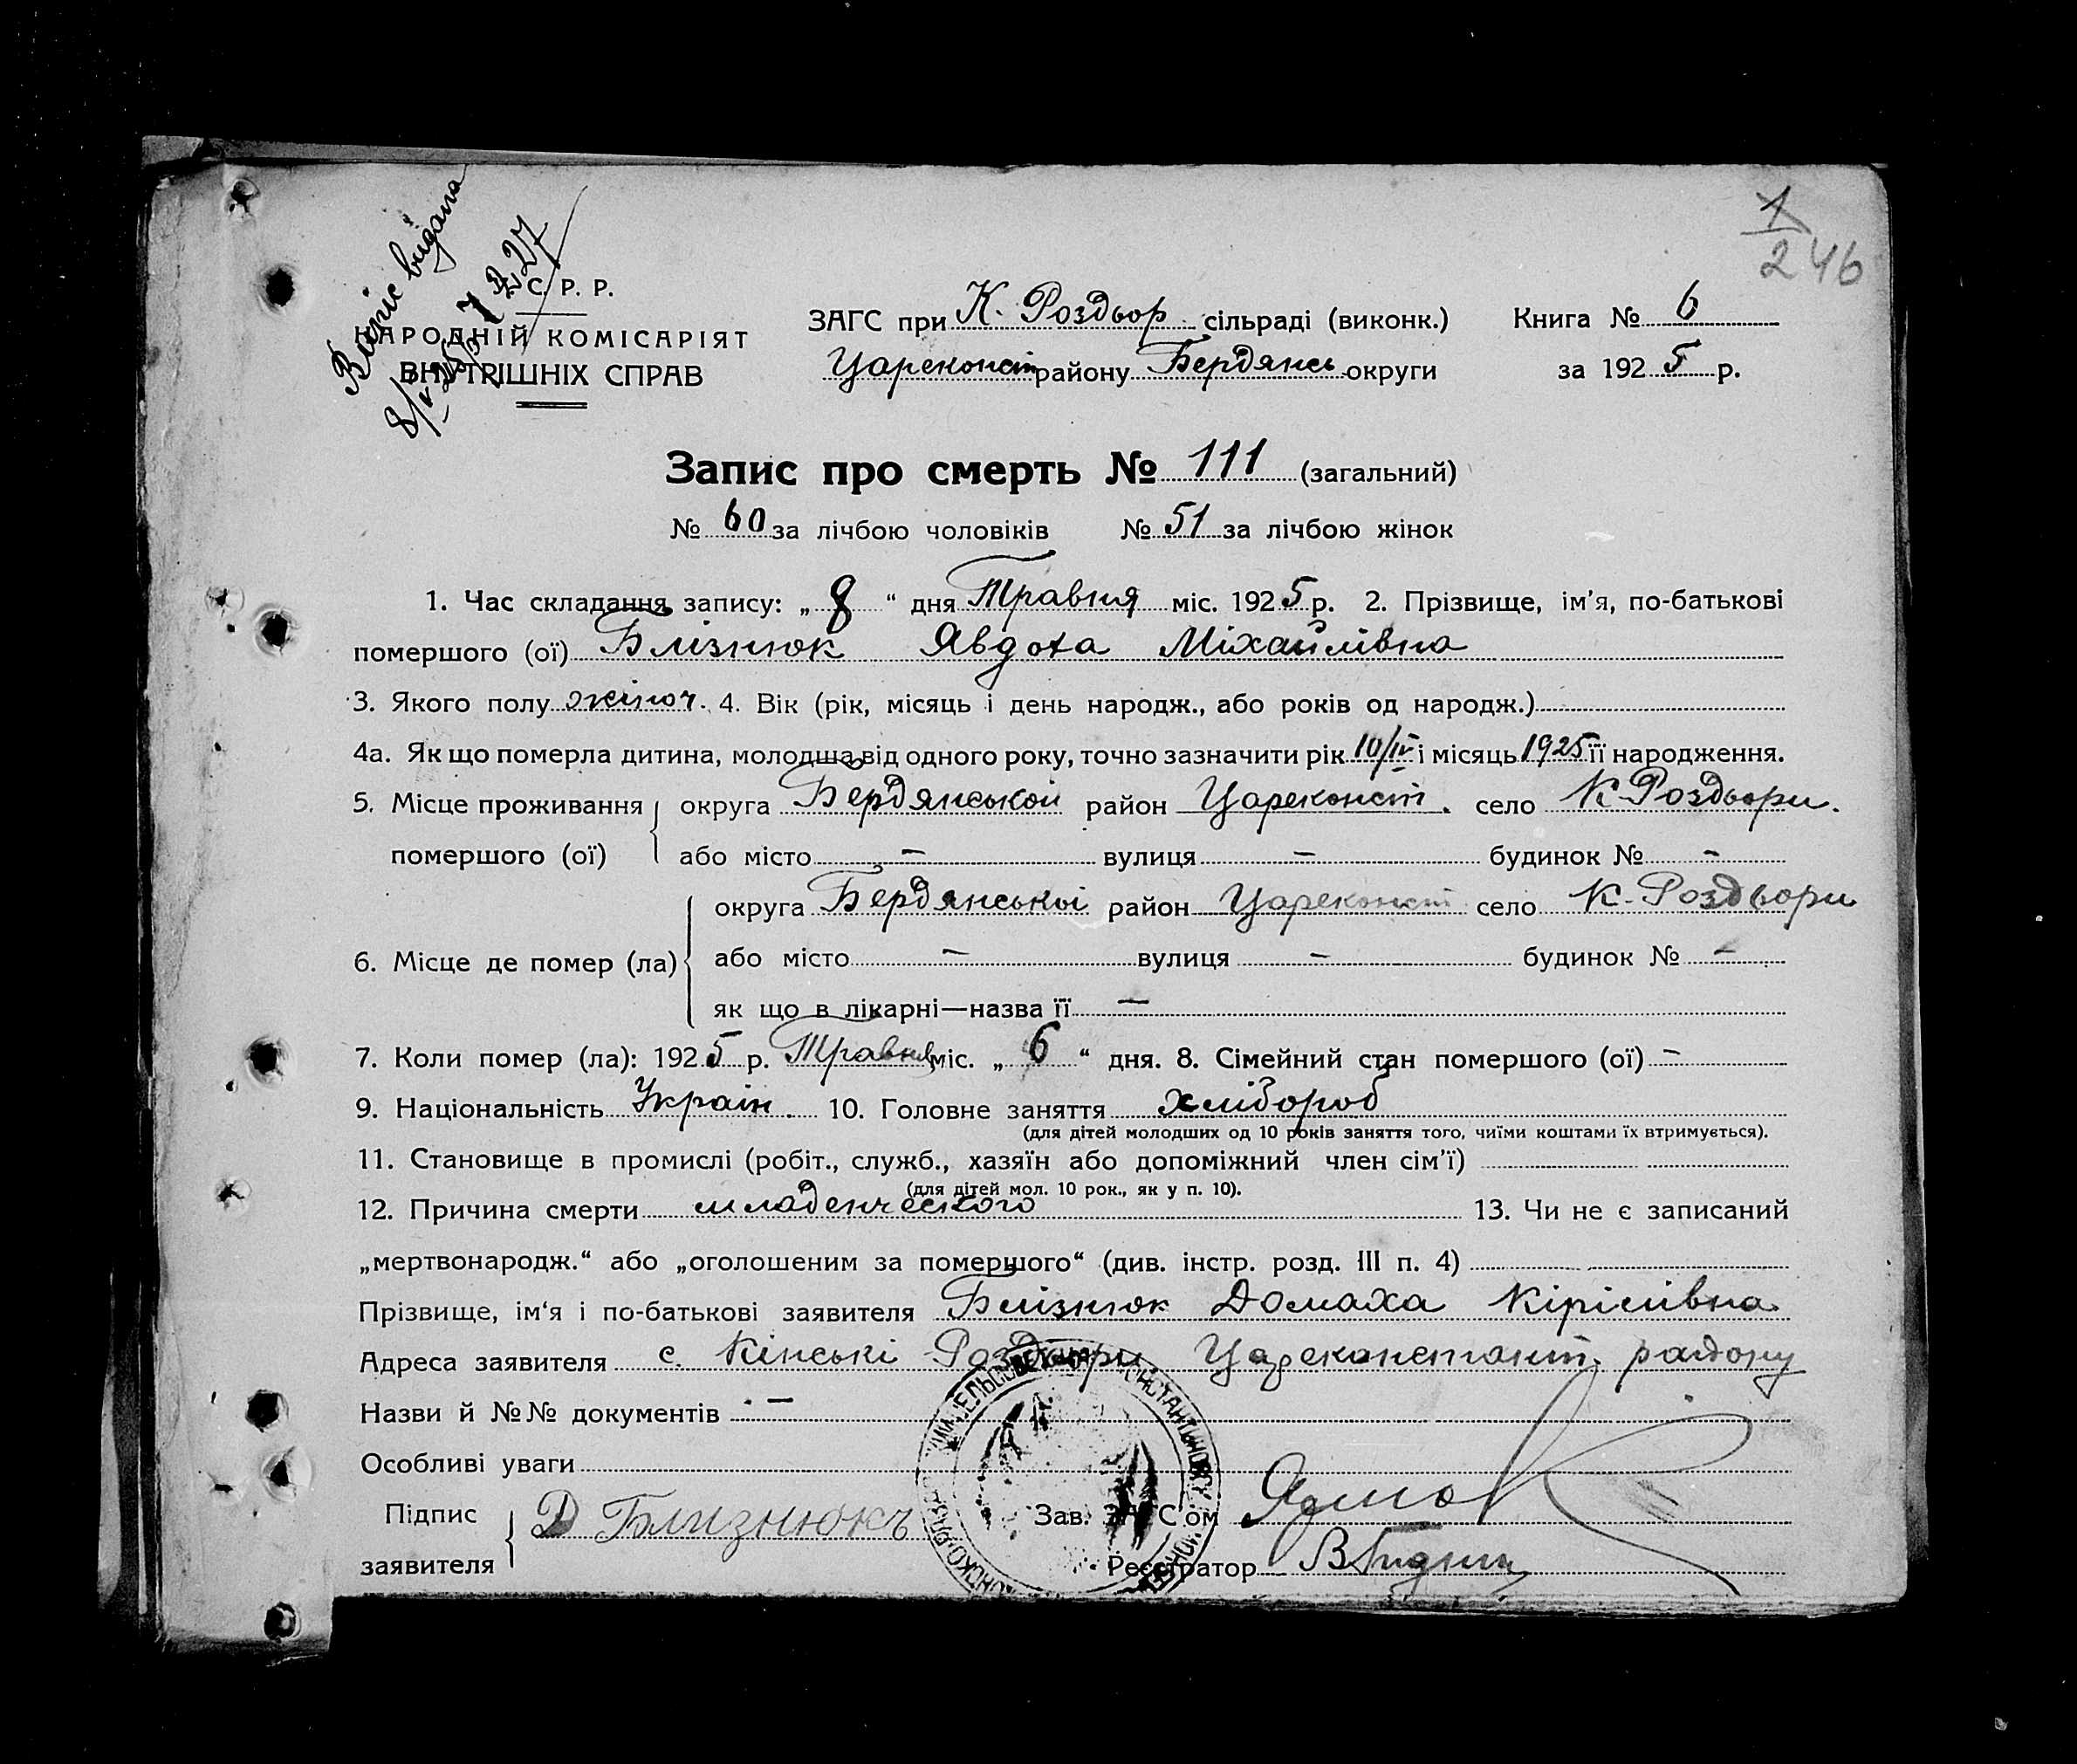 1
246
Випис видана
С. Р. Р.
НАРОДНІЙ КОМІСАРІЯТ
ВНУТРІШНІХ СПРАВ
ЗАГС при К. Роздвор сільраді (виконк.) Книга № 6
Цареконст району Бердянсь округи за 1925 р.
Запис про смерть № 111 (загальний)
№ 60 за лічбою чоловіків № 51 за лічбою жінок
1. Час складання запису: „ 8 “ дня Травня міс. 1925 р. 2. Прізвище, ім'я, по-батькові
помершого (ої) Блізнюк Явдоха Міхайлівна
3. Якого полу жіноч. 4. Вік (рік, місяць і день народж., або років од народж.)
4а. Як що померла дитина, молодша від одного року, точно зазначити рік 10/IV і місяць 1925 її народження.
5. Місце проживання округа Бердянськой район Цареконст. село К. Роздвори.
помершого (ої) або місто — вулиця — будинок № —
округа Бердянської район Цареконст село К. Роздвори
6. Місце де помер (ла) або місто — вулиця — будинок № —
як що в лікарні—назва її —
7. Коли помер (ла): 1925 р. Травня міс. „ 6 “ дня. 8. Сімейний стан помершого (ої) —
9. Національність Украін. 10. Головне заняття хлібороб
(для дітей молодших од 10 років заняття того, чиїми коштами їх втримується).
11. Становище в промислі (робіт., служб., хазяїн або допоміжний член сім'ї)
(для дітей мол. 10 рок., як у п. 10).
12. Причина смерти младенческого 13. Чи не є записаний
„мертвонародж.“ або „оголошеним за помершого“ (див. інстр. розд. III п. 4)
Прізвище, ім'я і по-батькові заявителя Блізнюк Домаха Кірілівна
Адреса заявителя с. Кінські Роздори Цареконстант. району
Назви й №№ документів —
Особливі уваги
Підпис
заявителя Д Близнюкъ
Зав. ЗАГС'ом
Реєстратор